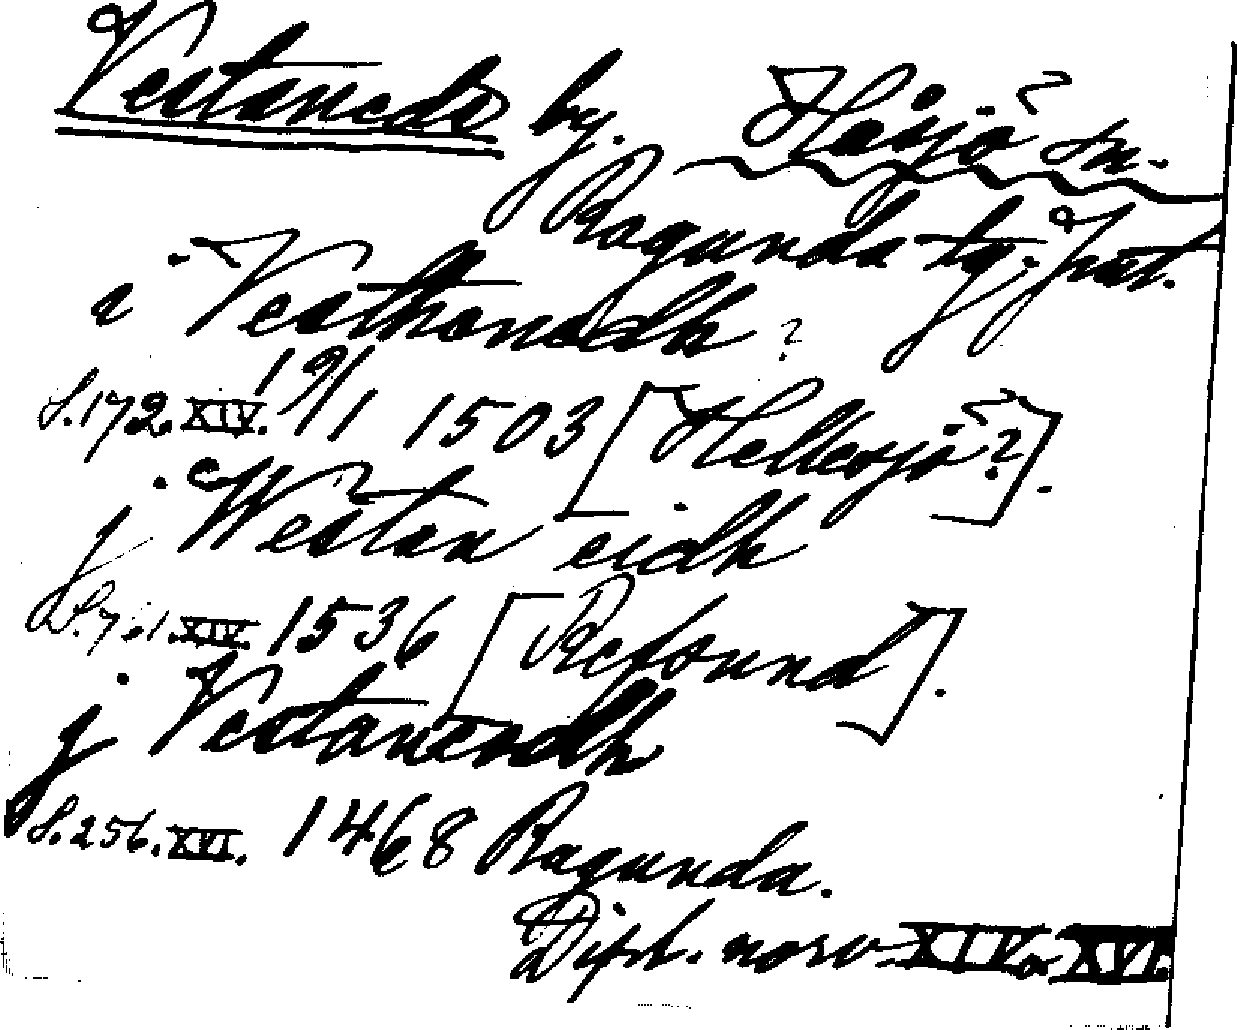 Vestanede by. Hässjö sn.
Ragunda tg, Jmt.
i Vesthanedh ?
S. 172. XIV. 19/1 1503 [Hellesjö?].
j Westan eidh
S. 701. XIV. 1536 [Refsund].
j Vestanendh
S. 256. XVI. 1468 Ragunda.
Dipl. norv XIV o XVI.